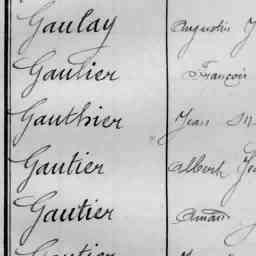 Gaulay Augustin
Gaulier François
Gauthier Jean
Gautier Albert
Gautier Amand
Gautier